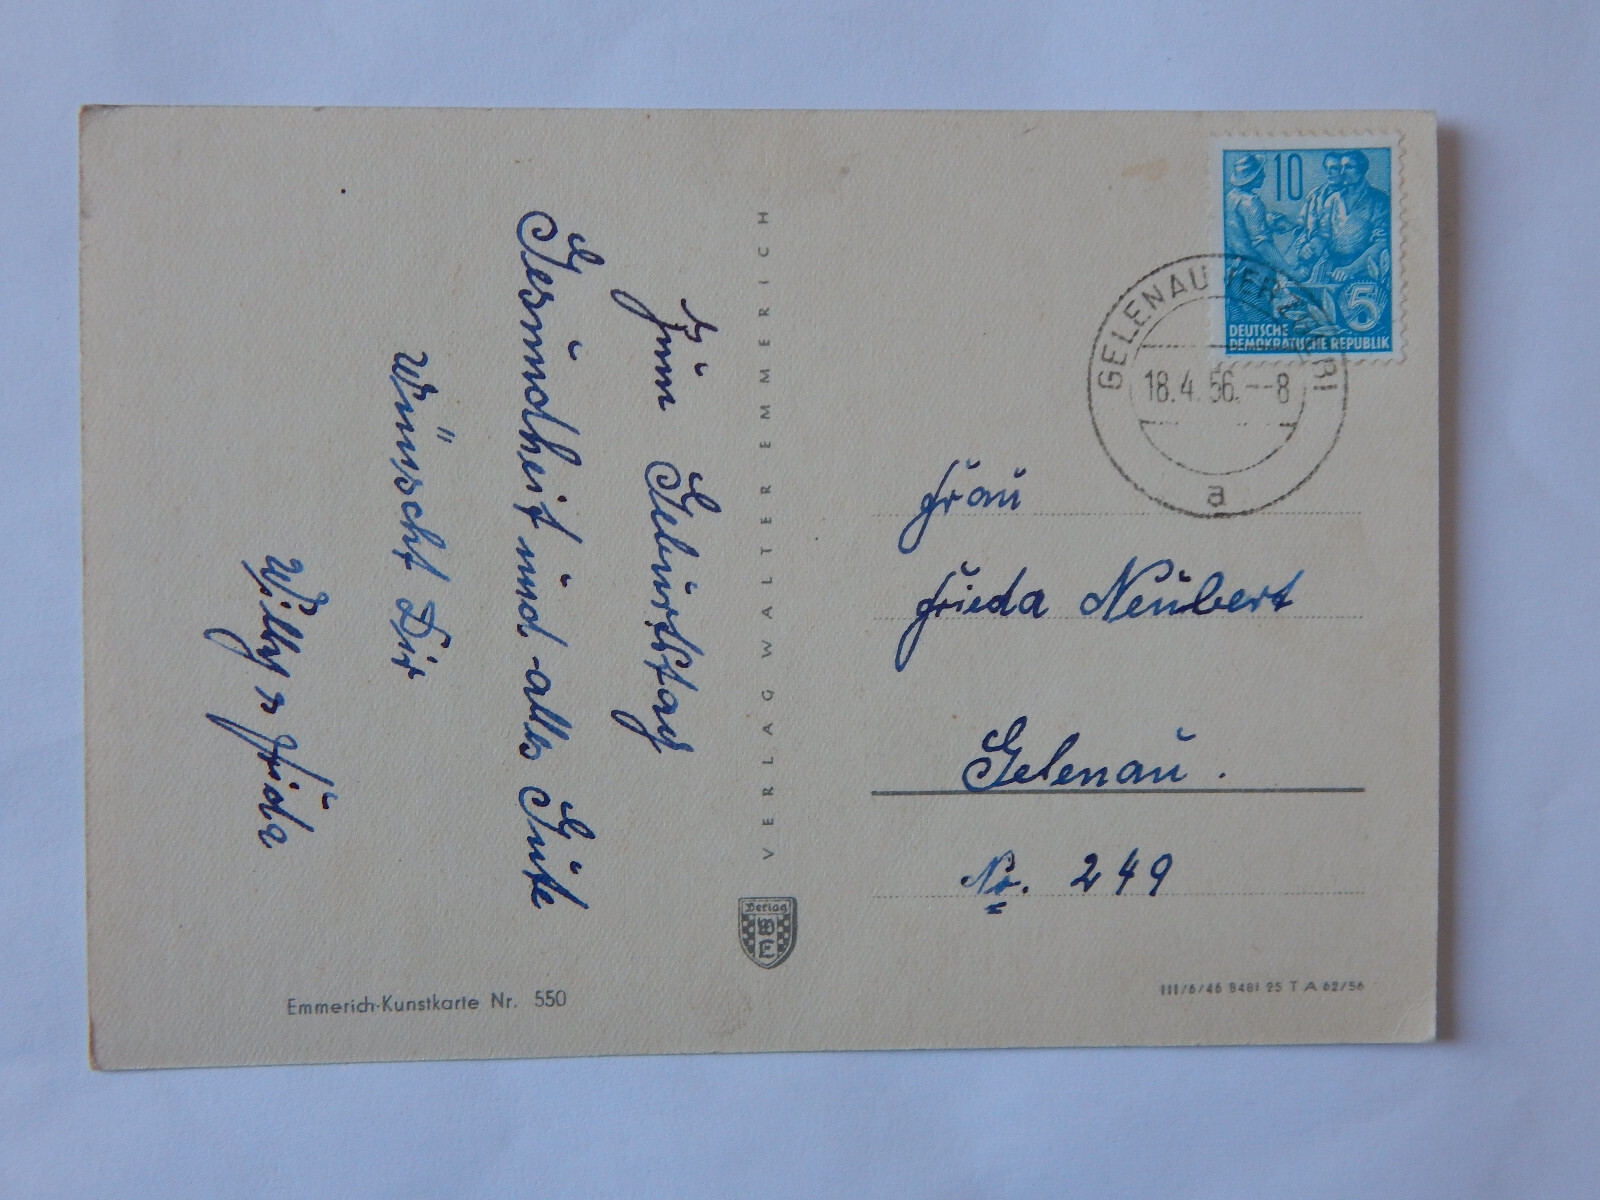 Zum Geburtstag
Gesundheit und alles Gute
Wünscht Dir
Willy u Frida
VERLAG WALTER EMMERICH
Verlag
WE
Emmerich-Kunstkarte Nr. 550
10
5
DEUTSCHE
DEMOKRATISCHE REPUBLIK
GELENAU (ERZGEB)
18.4.56.--8
a
Frau
Frieda Neubert
Gelenau.
Nr. 249
III/6/46 8481 25 T A 62/56